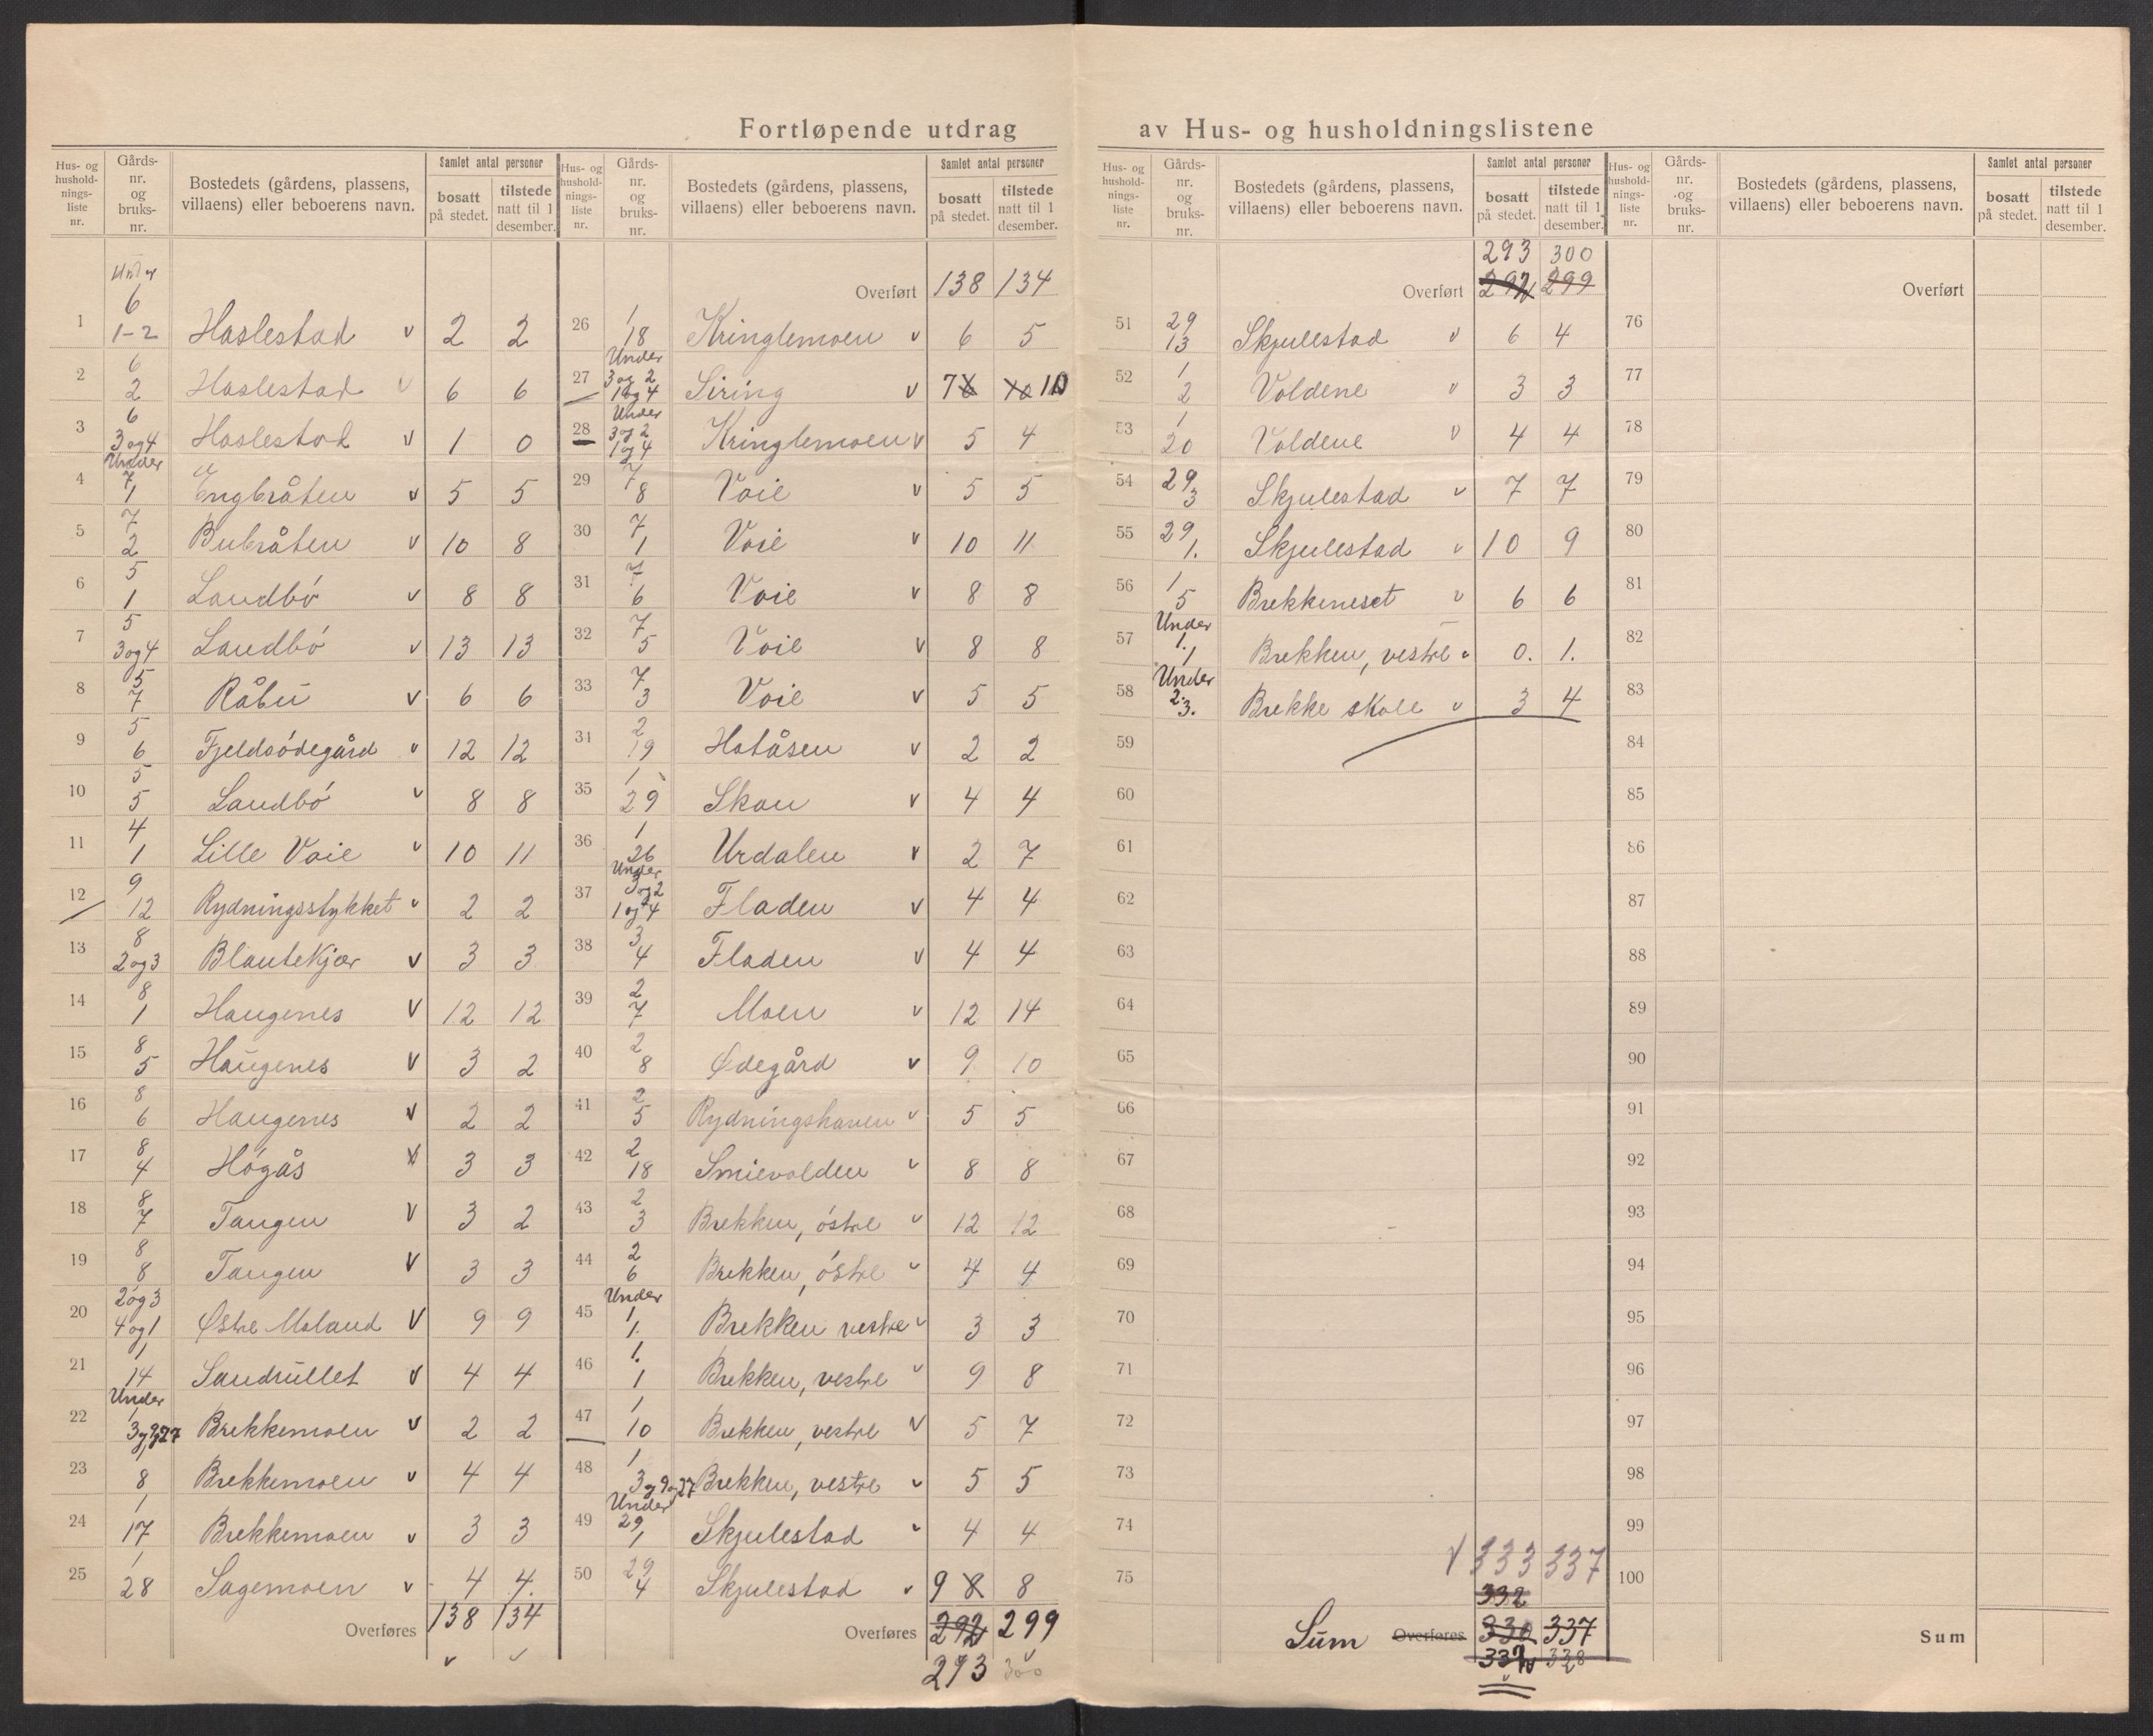 Fortløpende utdrag av Hus- og husholdningslistene
Hus- og husholdningsliste nr. | Gårdsnr. og bruksnr. | Bostedets (gårdens, plassens, villaens) eller beboerens navn. | Samlet antal personer bosatt på stedet. | tilstede natt til 1 desember.
1 Under 6 1-2 Haslestad v 2 2
2 6 2 Haslestad v 6 6
3 6 3og4 Haslestad v 1 0
4 Under 7 1 Engbråten v 5 5
5 7 2 Bubråten v 10 8
6 5 1 Landbö v 8 8
7 5 3og4 Landbö v 13 13
8 5 7 Råbu v 6 6
9 5 6 Fjeldsödegård v 12 12
10 5 5 Landbö v 8 8
11 4 1 Lille Voie v 10 11
12 9 12 Rydningsstykket v 2 2
13 8 2og3 Blautekjær v 3 3
14 8 1 Haugenes v 12 12
15 8 5 Haugenes v 3 2
16 8 6 Haugenes v 2 2
17 8 4 Högås v 3 3
18 8 7 Tangen v 3 2
19 8 8 Tangen v 3 3
20 2og3 4og1 Østre Moland v 9 9
21 1 14 Sandrullet v 4 4
22 Under 1 3og9og27 Brekkemoen v 2 2
23 1 8 Brekkemoen v 4 4
24 1 17 Brekkemoen v 3 3
25 1 28 Sagemoen v 4 4
Overføres 138 134
Hus- og husholdningsliste nr. | Gårdsnr. og bruksnr. | Bostedets (gårdens, plassens, villaens) eller beboerens navn. | Samlet antal personer bosatt på stedet. | tilstede natt til 1 desember.
Overført 138 134
26 1 18 Kringlemoen v 6 5
27 Under 3og2 1og4 Siring v 7 8 10 10
28 Under 3og2 1og4 Kringlemoen v 5 4
29 7 8 Voie v 5 5
30 7 1 Voie v 10 11
31 7 6 Voie v 8 8
32 7 5 Voie v 8 8
33 7 3 Voie v 5 5
34 2 19 Hatåsen v 2 2
35 1 29 Skou v 4 4
36 1 26 Urdalen v 2 7
37 Under 3og2 1og4 Fladen v 4 4
38 3 4 Fladen v 4 4
39 2 7 Moen v 12 14
40 2 8 Ødegård v 9 10
41 2 5 Rydningshaven v 5 5
42 2 18 Smievolden v 8 8
43 2 3 Brekken, östre v 12 12
44 2 6 Brekken, östre v 4 4
45 Under 1 1. Brekken vestre v 3 3
46 1. 1 Brekken, vestre v 9 8
47 1 10 Brekken, vestre v 5 7
48 1 3og9og27 Brekken, vestre v 5 5
49 Under 29 1 Skjulestad v 4 4
50 29 4 Skjulestad v 9 8 8
Overføres 292 299
293 300
Hus- og husholdningsliste nr. | Gårdsnr. og bruksnr. | Bostedets (gårdens, plassens, villaens) eller beboerens navn. | Samlet antal personer bosatt på stedet. | tilstede natt til 1 desember.
293 300
Overført 292 299
51 29 13 Skjulestad v 6 4
52 1 2 Voldene v 3 3
53 1 20 Voldene v 4 4
54 29 3 Skjulestad v 7 7
55 29 1. Skjulestad v 10 9
56 1 5 Brekkeneset v 6 6
57 Under 1. 1 Brekken, vestre v 0. 1.
58 Under 2. 3. Brekke skole v 3 4
59
60
61
62
63
64
65
66
67
68
69
70
71
72
73
74
75
v 333 337
332
Sum Overføres 330 337
332 338
Hus- og husholdningsliste nr. | Gårdsnr. og bruksnr. | Bostedets (gårdens, plassens, villaens) eller beboerens navn. | Samlet antal personer bosatt på stedet. | tilstede natt til 1 desember.
Overført
76
77
78
79
80
81
82
83
84
85
86
87
88
89
90
91
92
93
94
95
96
97
98
99
100
Sum